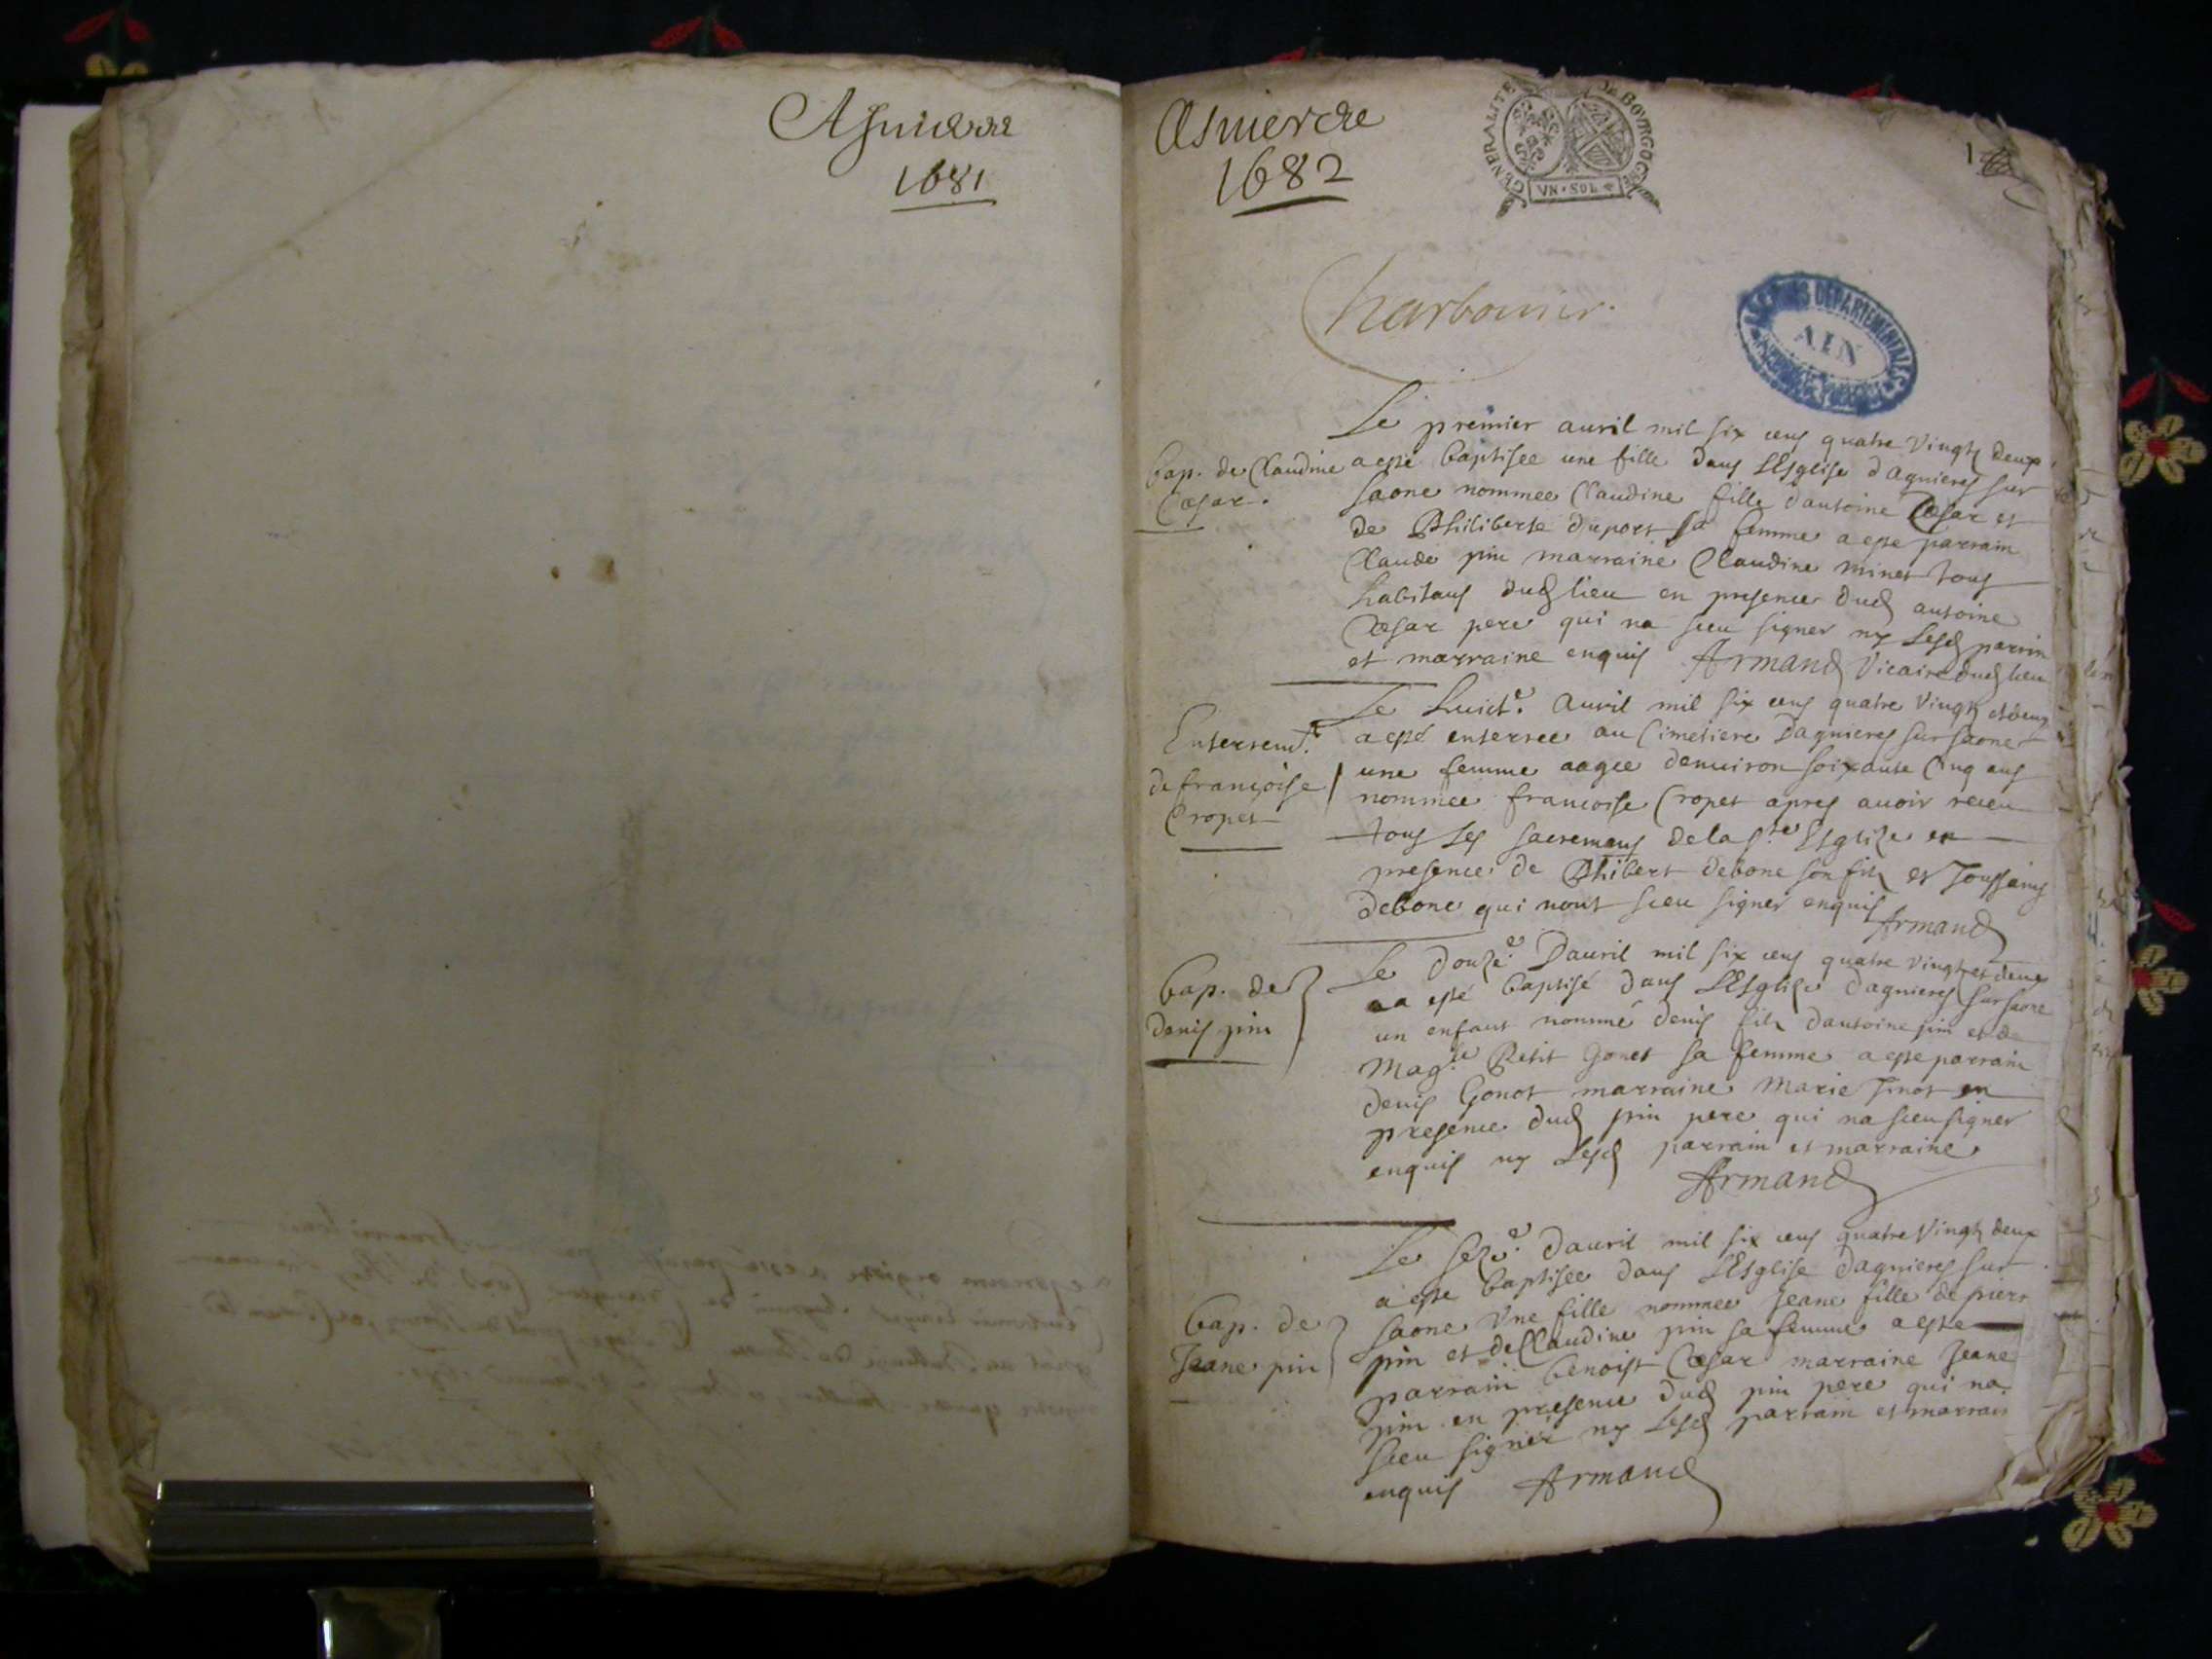 Asnierre
1681
Asnierre
1682
GENERALITE DE BOVRGOGNE
VN·SOL
1
Charbonnier.
ARCHIVES DEPARTEMENTALES
AIN
Le premier auril mil six cens quatre vingtz deux
Bap. de Claudine
Cæsar.
a esté baptisee une fille dans LEsglise dagnieres sur
saone nommee Claudine fille dantoine Cæsar et
de Philiberte duport sa femme a este parrain
Claude pin marraine Claudine minet tous
habitans dud lieu en presence dud antoine
Cæsar pere qui na sceu signer ny Lesd parrin
et marraine enquis Armand Vicaire dud lieu
Enterremt.
de françoise
Cropet
Le huicte. auril mil six cens quatre vingtz et deux
a esté enterree au Cimetiere dagnieres sur saone
une femme aagee denuiron soixante Cinq ans
nommee francoise Cropet apres auoir receu
tous les sacremans de la ste Esglize en
presence de Phibert debone son filz et Toussains
debone qui nont sceu signer enquis
Armand
Bap. de
denis pin
Le douze. Dauril mil six cens quatre vingtz et deux
a esté baptisé dans LEsglize dagnieres sur saone
un enfant nommé denis filz dantoine pin et de
Magle Petit Gonet sa femme a este parrain
denis Gonot marraine Marie pinot en
presence dud pin pere qui na sceu signer
enquis ny Lesd parrain et marraine
Armand
Bap. de
Jeane pin
Le seze. dauril mil six cens quatre vingtz deux
a este baptisee dans LEsglise dagnieres sur
saone Une fille nommee Jeane fille de pierr
pin et de Claudine pin sa femme a este
parrain benoist Cæsar marraine Jeane
pin en presence dud pin pere qui na
sceu signer ny Lesd parrain et marrain
enquis Armand